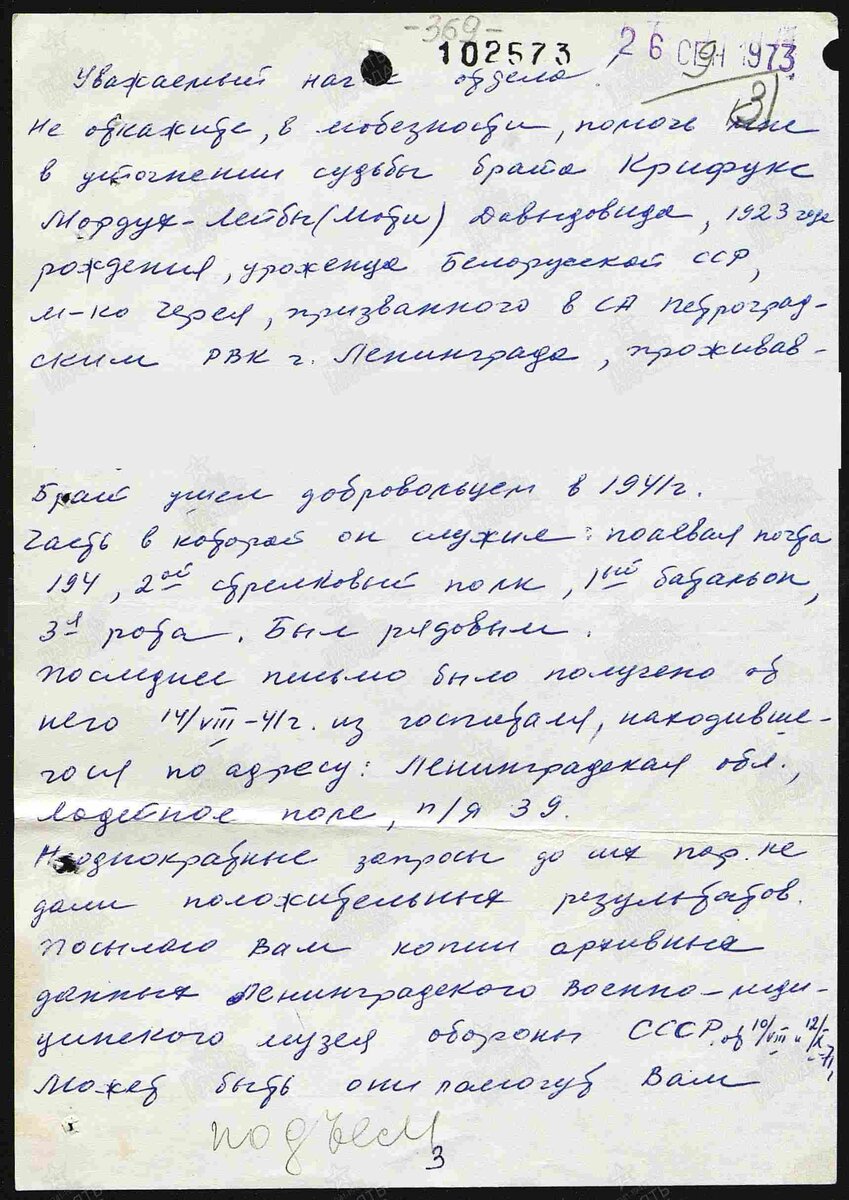 -369-
102573
26 СЕН 1973
9
31
Уважаемый нач-к отдела!
Не откажите, в любезности, помочь мне
в уточнении судьбы брата Крифукс
Мордух-Лейбы (Моти) Давыдовича, 1923 года
рождения, уроженца Белорусской ССР,
м-ко Черея, призванного в СА Петроград-
ским РВК г. Ленинграда, проживав-
Брат ушел добровольцем в 1941г.
Часть в которой он служил: полевая почта
194, 2ой стрелковый полк, 1ый батальон,
3я рота. Был рядовым.
Последнее письмо было получено от
него 14/VIII-41г. из госпиталя, находивше-
гося по адресу: Ленинградская обл.,
Лодейное поле, п/я 39.
Неоднократные запросы до сих пор не
дали положительных результатов.
Посылаю Вам копии архивных
данных Ленинградского Военно-меди-
цинского музея обороны СССР от 10/VIII и 12/X-71,
Может быть они помогут Вам
подъем
3